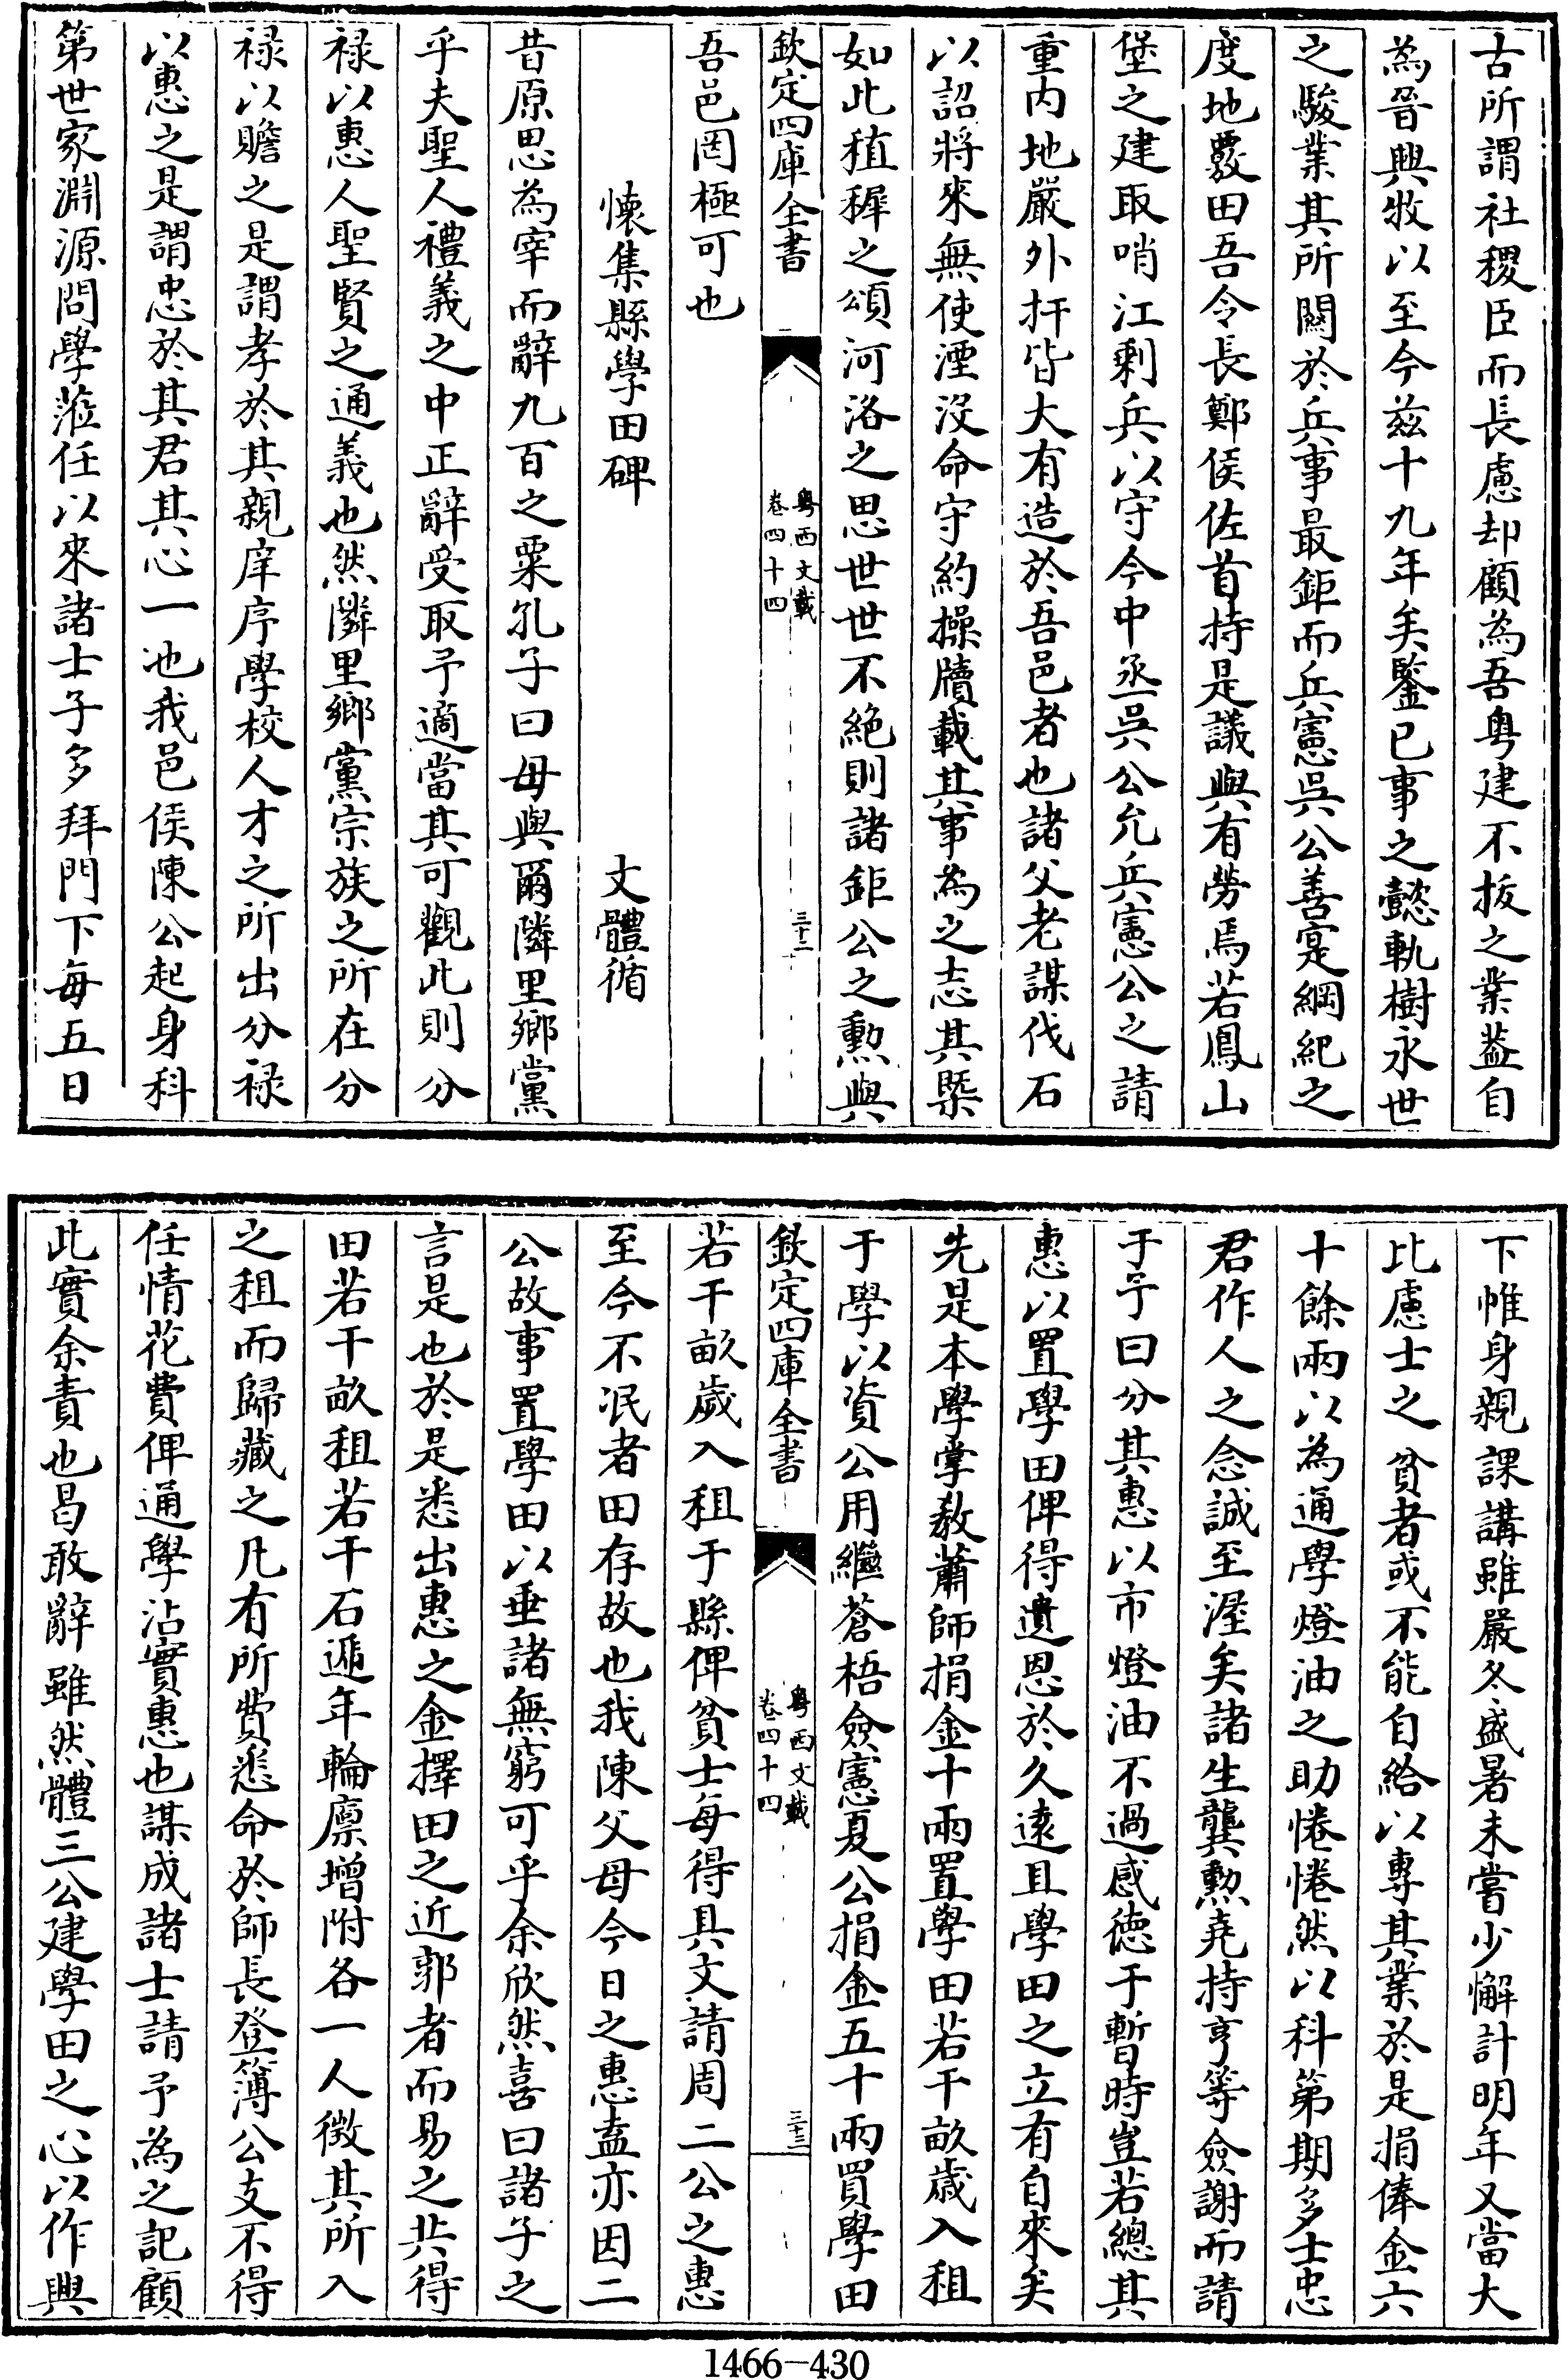 古所謂社稷臣而長慮却顧為吾粤建不拔之業葢自
為晉興牧以至今兹十九年矣鑒已事之懿軌樹永世
之駿業其所關於兵事最鉅而兵憲吳公善寔綱紀之
度地覈田吾令長鄭侯佐首持是議與有勞焉若鳳山
堡之建取哨江剩兵以守今中丞吳公允兵憲公之請
重内地嚴外扞皆大有造於吾邑者也諸父老謀伐石
以詔將來無使湮没命守約操牘載其事為之志其槩
如此稙穉之頌河洛之思世世不絶則諸鉅公之勲與
欽定四庫全書
粤西文載
卷四十四
三十二
吾邑罔極可也
懷集縣學田碑
文體循
昔原思為宰而辭九百之粟孔子曰毋與爾隣里鄉黨
乎夫聖人禮義之中正辭受取予適當其可觀此則分
禄以惠人聖賢之通義也然隣里鄉黨宗族之所在分
禄以贍之是謂孝於其親庠序學校人才之所出分禄
以惠之是謂忠於其君其心一也我邑侯陳公起身科
第世家淵源問學蒞任以來諸士子多拜門下每五日
下帷身親課講雖嚴冬盛暑未嘗少懈計明年又當大
比慮士之貧者或不能自給以專其業於是捐俸金六
十餘兩以為通學燈油之助惓惓然以科第期多士忠
君作人之念誠至渥矣諸生龔勲堯持亨等僉謝而請
于予曰分其惠以市燈油不過感徳于暫時豈若總其
惠以置學田俾得遺恩於久遠且學田之立有自來矣
先是本學掌教蕭師捐金十兩置學田若干畝歲入租
于學以資公用繼蒼梧僉憲夏公捐金五十兩買學田
欽定四庫全書
粤西文載
卷四十四
三十三
若干畝歲入租于縣俾貧士每得具文請周二公之惠
至今不泯者田存故也我陳父母今日之惠盍亦因二
公故事置學田以垂諸無窮可乎余欣然喜曰諸子之
言是也於是悉出惠之金擇田之近郭者而易之共得
田若干畝租若干石遞年輪廪增附各一人徴其所入
之租而歸藏之凡有所費悉命於師長登簿公支不得
任情花費俾通學沾實惠也謀成諸士請予為之記顧
此實余責也曷敢辭雖然體三公建學田之心以作興
1466-430